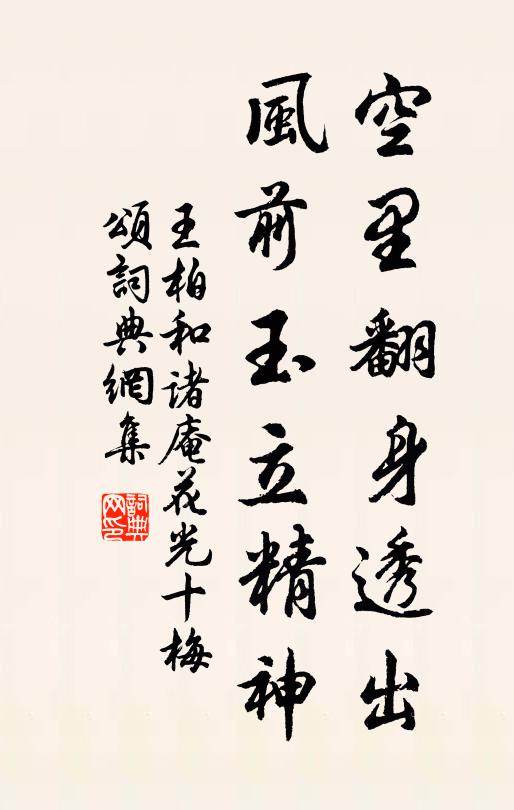 空里翻身透出
風前玉立精神
王柏和諸庵花光十梅
頌詞典網集
詞典网印